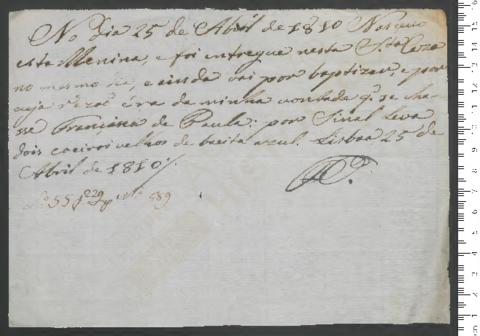 No Dia 25 de Abril de 1810 Nasceu
esta Menina, e foi entregue nesta S.ta Caza
no mesmo dia, e ainda vai por baptizar, e por
cuja rezaõ éra da minha vontade q.e se cha-
sse Francisca de Paula: por Sinal Leva
dois de baeta azul. Lisboa 25 de
Abril de 1810